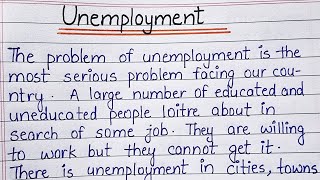 Unemployment
The problem of unemployment is the
most serious problem facing our cou-
ntry. A large number of educated and
uneducated people loitre about in
search of some job. They are willing
to work but they cannot get it.
There is unemployment in cities, towns